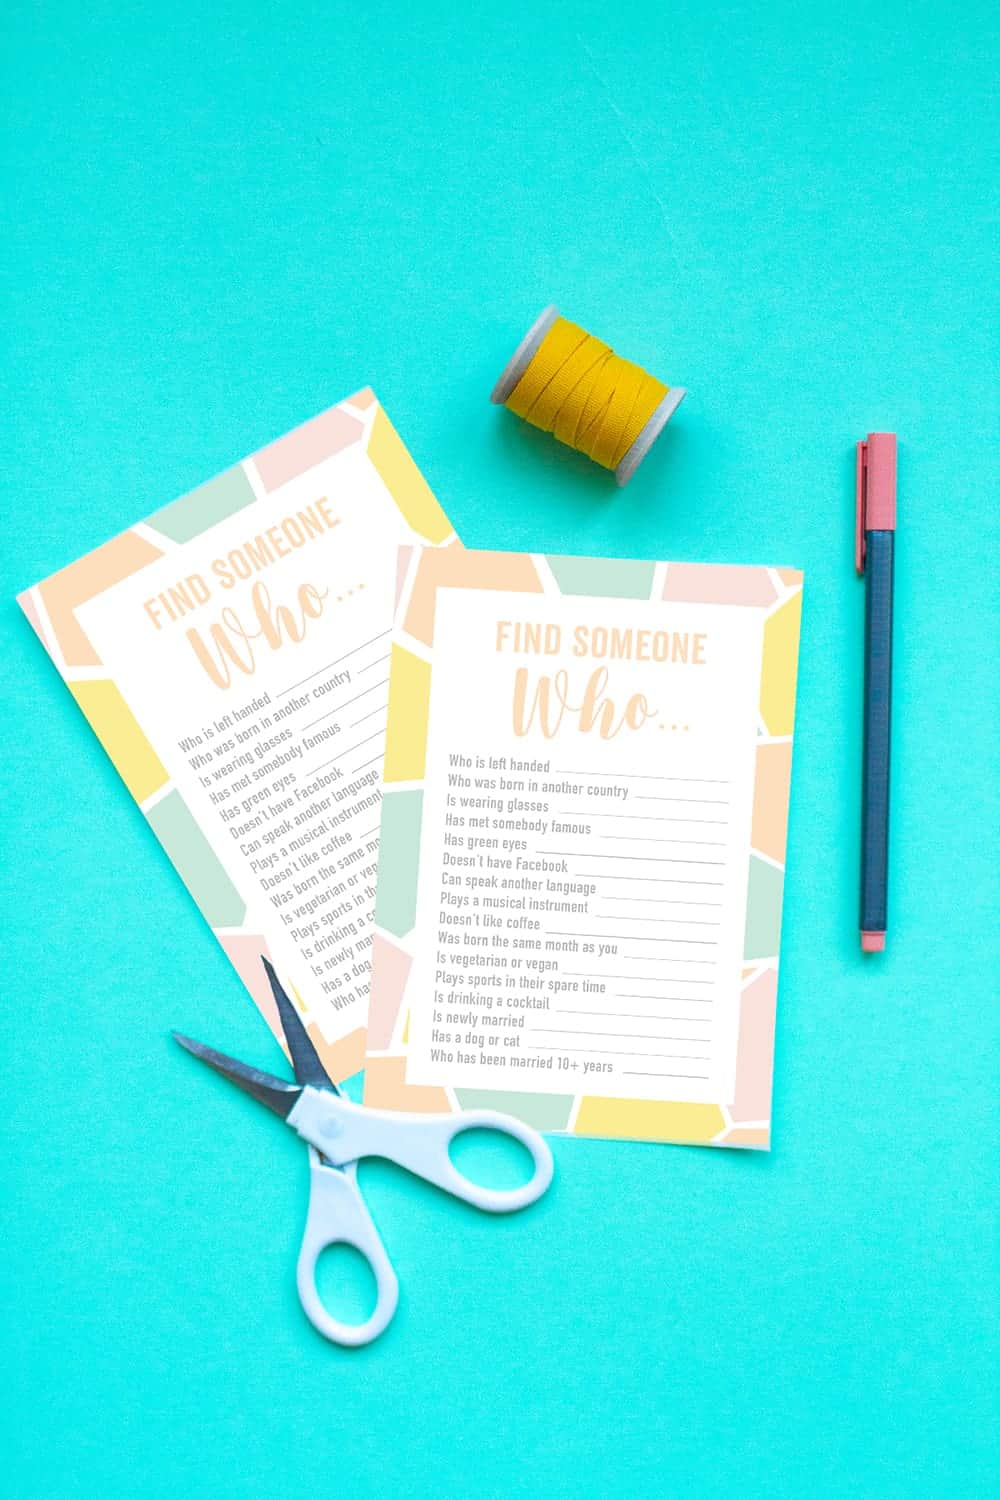 FIND SOMEONE
Who...
Who is left handed
Who was born in another country
Is wearing glasses
Has met somebody famous
Has green eyes
Doesn't have Facebook
Can speak another language
Plays a musical instrument
Doesn't like coffee
Was born the same mo
Is vegetarian or veg
Plays sports in th
Is drinking a c
Is newly ma
Has a dog
Who ha
FIND SOMEONE
Who...
Who is left handed
Who was born in another country
Is wearing glasses
Has met somebody famous
Has green eyes
Doesn't have Facebook
Can speak another language
Plays a musical instrument
Doesn't like coffee
Was born the same month as you
Is vegetarian or vegan
Plays sports in their spare time
Is drinking a cocktail
Is newly married
Has a dog or cat
Who has been married 10+ years